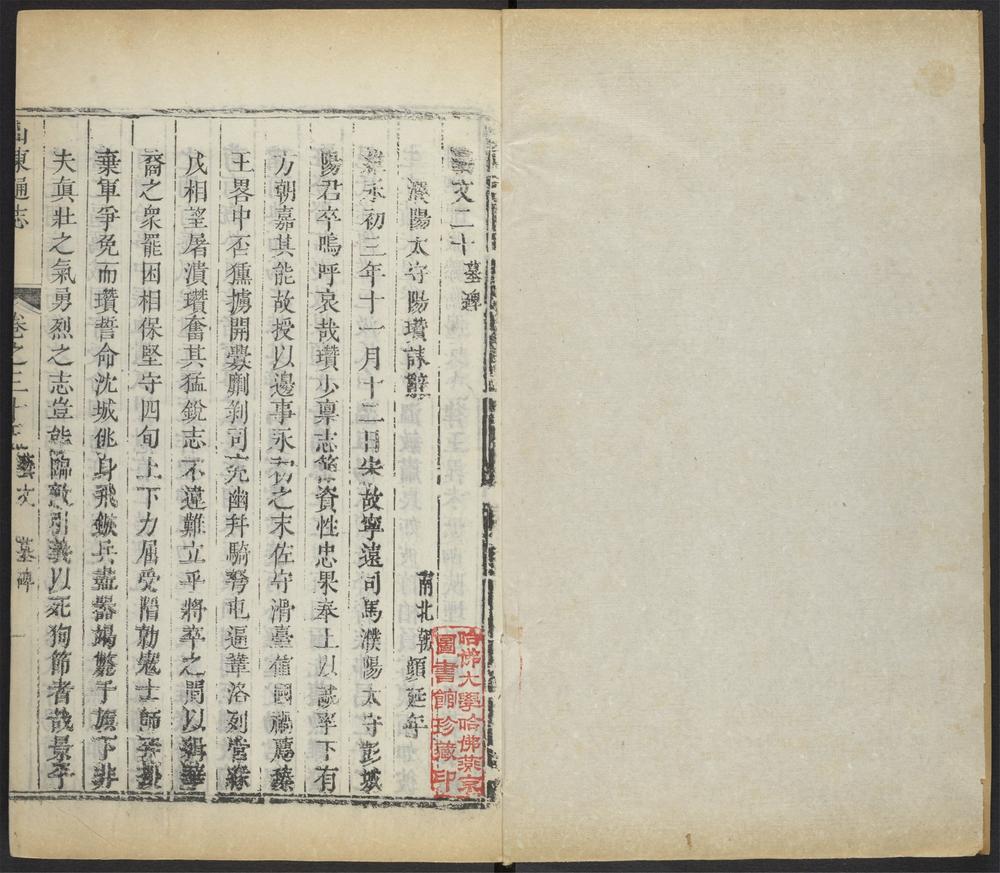 藝文二十 墓碑
濮陽太守陽瓚誄辭 南北朝 顏延年
惟永初三年十一月十二日宋故寧遠司馬濮陽太守彭城
陽君卒嗚呼哀哉瓚少稟志節資性忠果奉上以誠率下有
方朝嘉其能故授以邊事永初之末佐守滑臺舊國禍薦臻
王畧中否獯擄開釁劘剝司兖幽幷騎弩屯逼鞏洛列營緣
戍相望屠潰瓚奮其猛銳志不違難立乎將卒之間以緝華
裔之衆罷困相保堅守四旬上下力屈受陷勍寇士師奔
棄軍爭免而瓚誓命沈城佻身飛鏃兵盡器竭斃于旗下非
夫真壯之氣勇烈之志豈能臨敵引義以死狥節者哉景平
山東通志 卷之三十五 藝文 墓碑 一
哈佛大學哈佛燕京
圖書館珍藏印